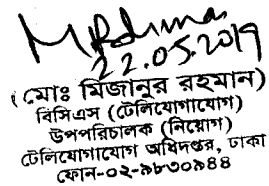 22.05.2019
(মোঃ মিজানুর রহমান)
বিসিএস (টেলিযোগাযোগ)
উপপরিচালক (নিয়োগ)
টেলিযোগাযোগ অধিদপ্তর, ঢাকা
ফোন-০২-৯৮৩০৯৪৪